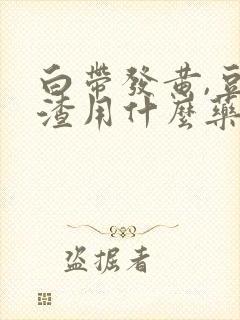 白帶發黃,豆
渣用什麼藥
盜掘者